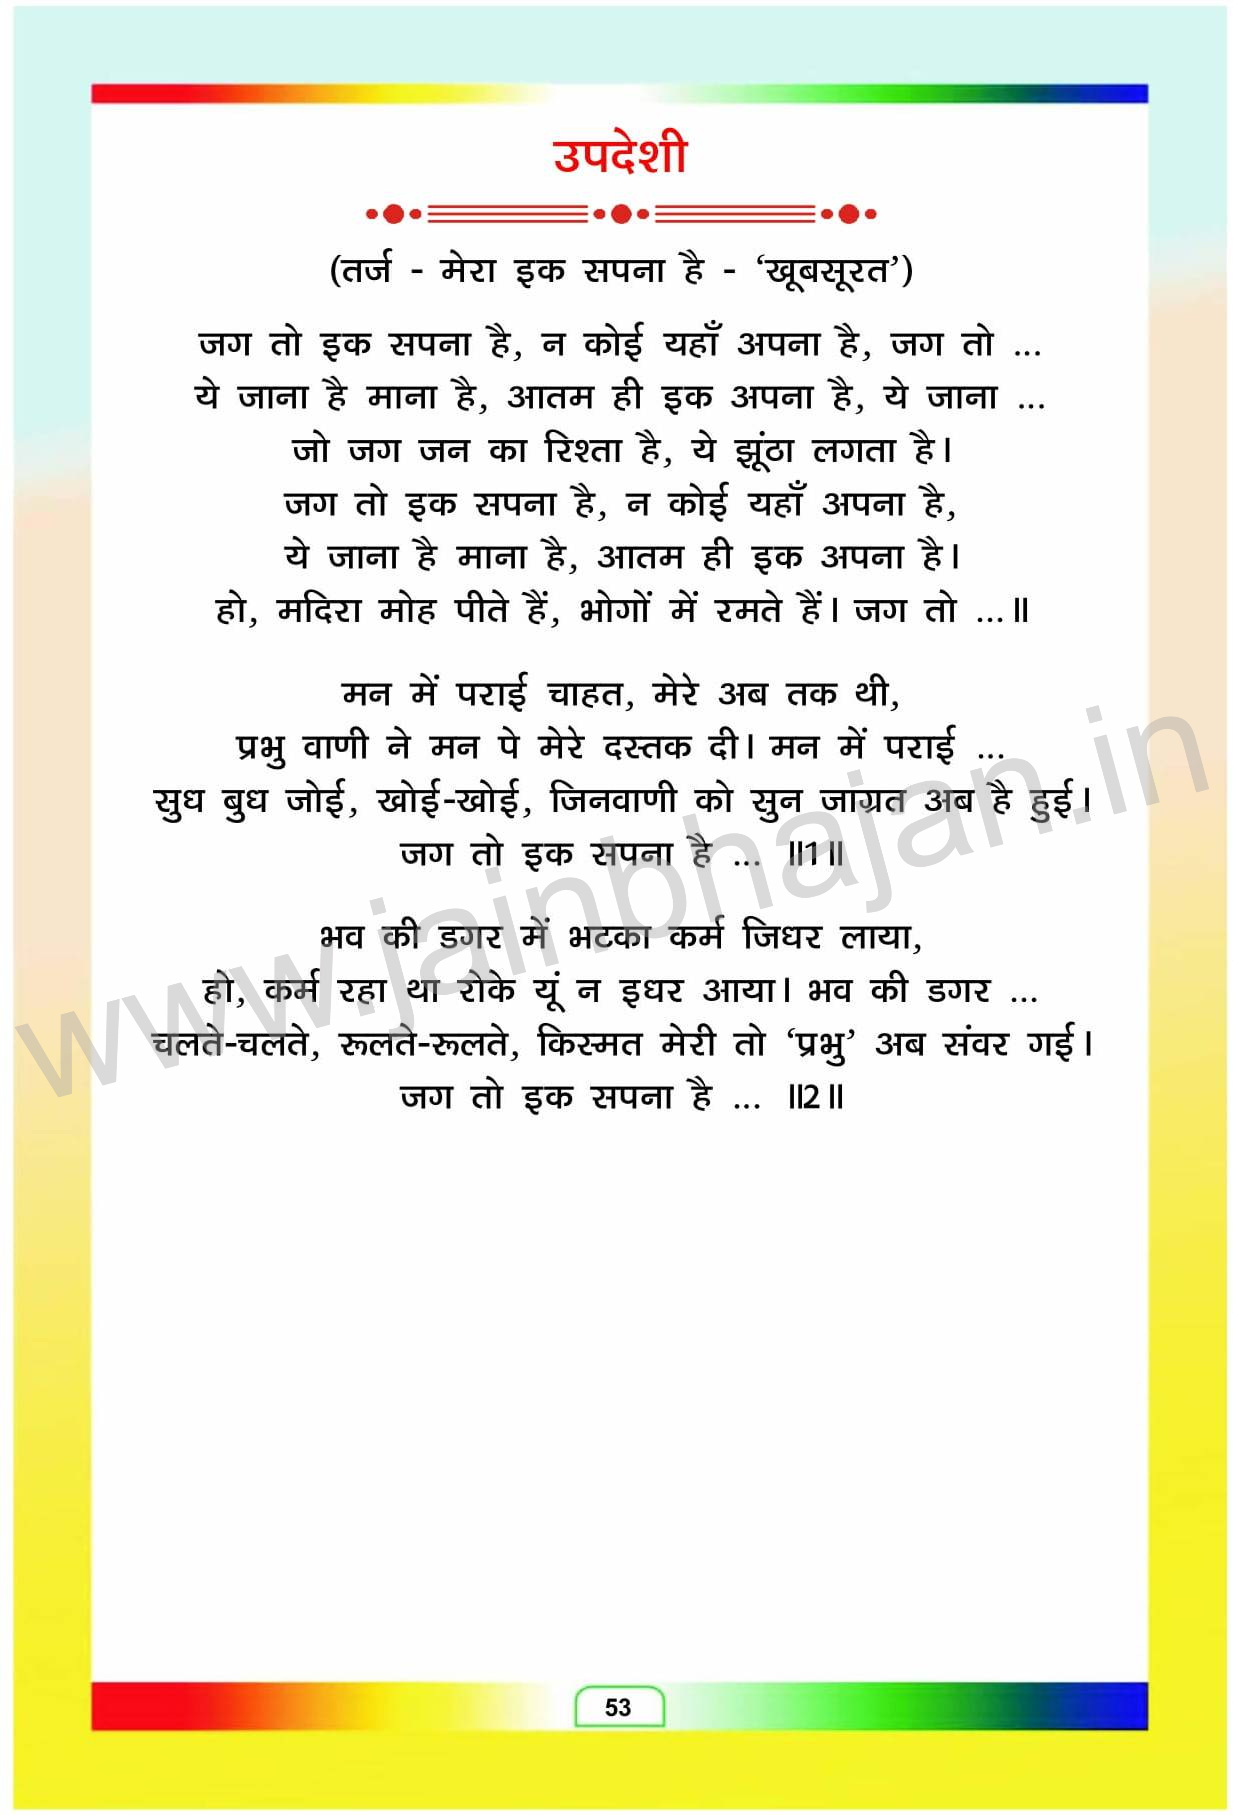 उपदेशी
(तर्ज - मेरा इक सपना है - ‘खूबसूरत’)
जग तो इक सपना है, न कोई यहाँ अपना है, जग तो ...
ये जाना है माना है, आतम ही इक अपना है, ये जाना ...
जो जग जन का रिश्ता है, ये झूंठा लगता है।
जग तो इक सपना है, न कोई यहाँ अपना है,
ये जाना है माना है, आतम ही इक अपना है।
हो, मदिरा मोह पीते हैं, भोगों में रमते हैं। जग तो ...॥
मन में पराई चाहत, मेरे अब तक थी,
प्रभु वाणी ने मन पे मेरे दस्तक दी। मन में पराई ...
सुध बुध जोई, खोई-खोई, जिनवाणी को सुन जाग्रत अब है हुई।
जग तो इक सपना है ... ॥1॥
भव की डगर में भटका कर्म जिधर लाया,
हो, कर्म रहा था रोके यूं न इधर आया। भव की डगर ...
चलते-चलते, रूलते-रूलते, किस्मत मेरी तो ‘प्रभु’ अब संवर गई।
जग तो इक सपना है ... ॥2॥
www.jainbhajan.in
53